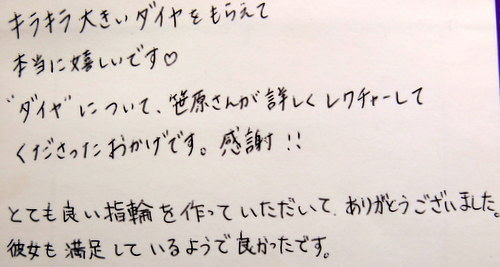 キラキラ大きいダイヤをもらえて
本当に嬉しいです♡
"ダイヤ"について、笹原さんが詳しくレクチャーして
くださったおかげです。感謝!!
とても良い指輪を作っていただいて、ありがとうございました。
彼女も満足しているようで良かったです。